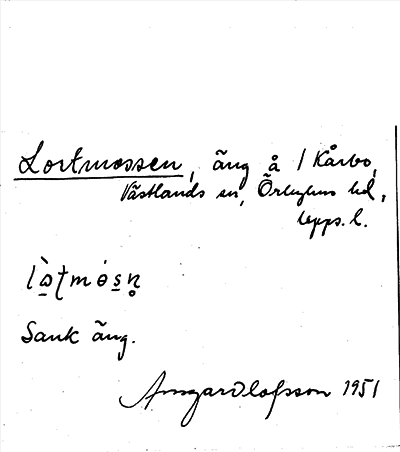 Lortmossen, äng å / Kårbo,
Västlands sn, Örbyhus hd,
Upps. l.
Sank äng.
Ansgar Olofsson 1951